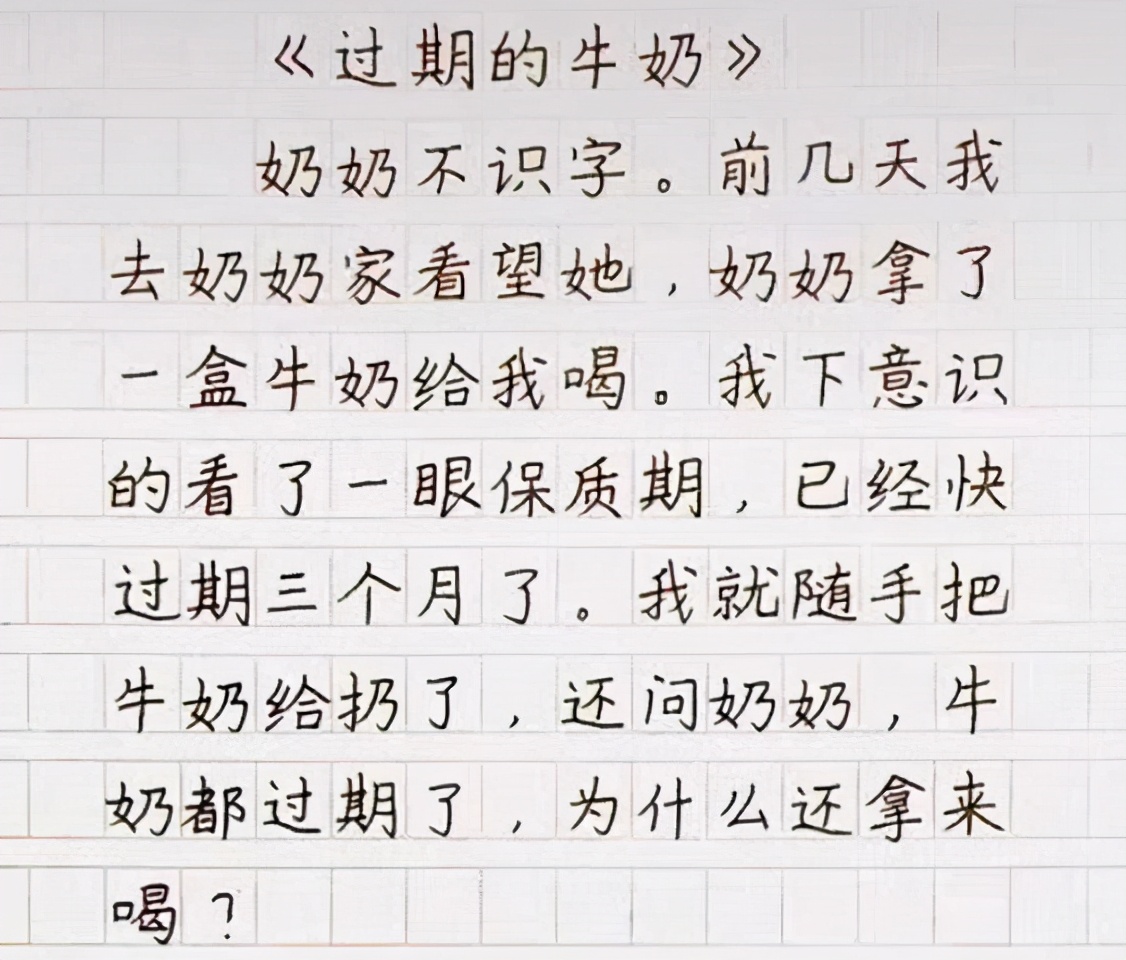 《过期的牛奶》
奶奶不识字。前几天我
去奶奶家看望她，奶奶拿了
一盒牛奶给我喝。我下意识
的看了一眼保质期，已经快
过期三个月了。我就随手把
牛奶给扔了，还问奶奶，牛
奶都过期了，为什么还拿来
喝？